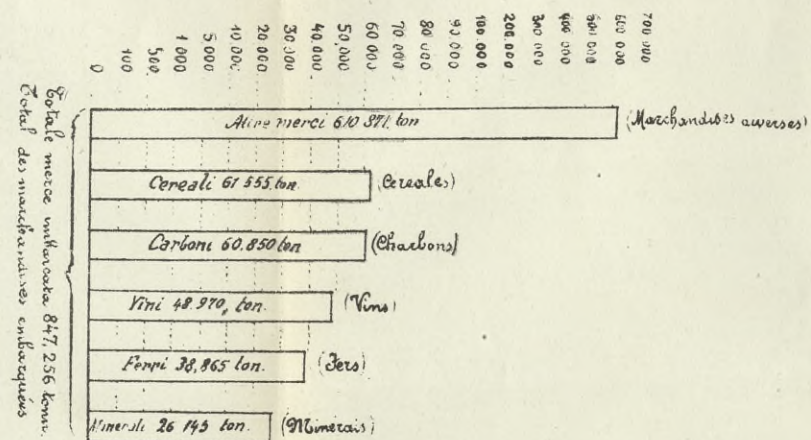 0
100
500.
1 000
5 000
10.000
20 000
30 000
40.000
50,000
60 000
70 000
80 000
90.000
100 000
200.000
300 000
400 000
500 000
600 000
700 000
Totale merce imbarcata 847,256 tonn.
Total des marchandises embarquées
Altre merci 610 871. ton (Marchandises diverses)
Cereali 61 555 ton. (Cereales)
Carboni 60.850 ton (Charbons)
Vini 48.970, ton. (Vins)
Ferri 38,865 ton. (Fers)
Minerali 26 145 ton. (Minerais)